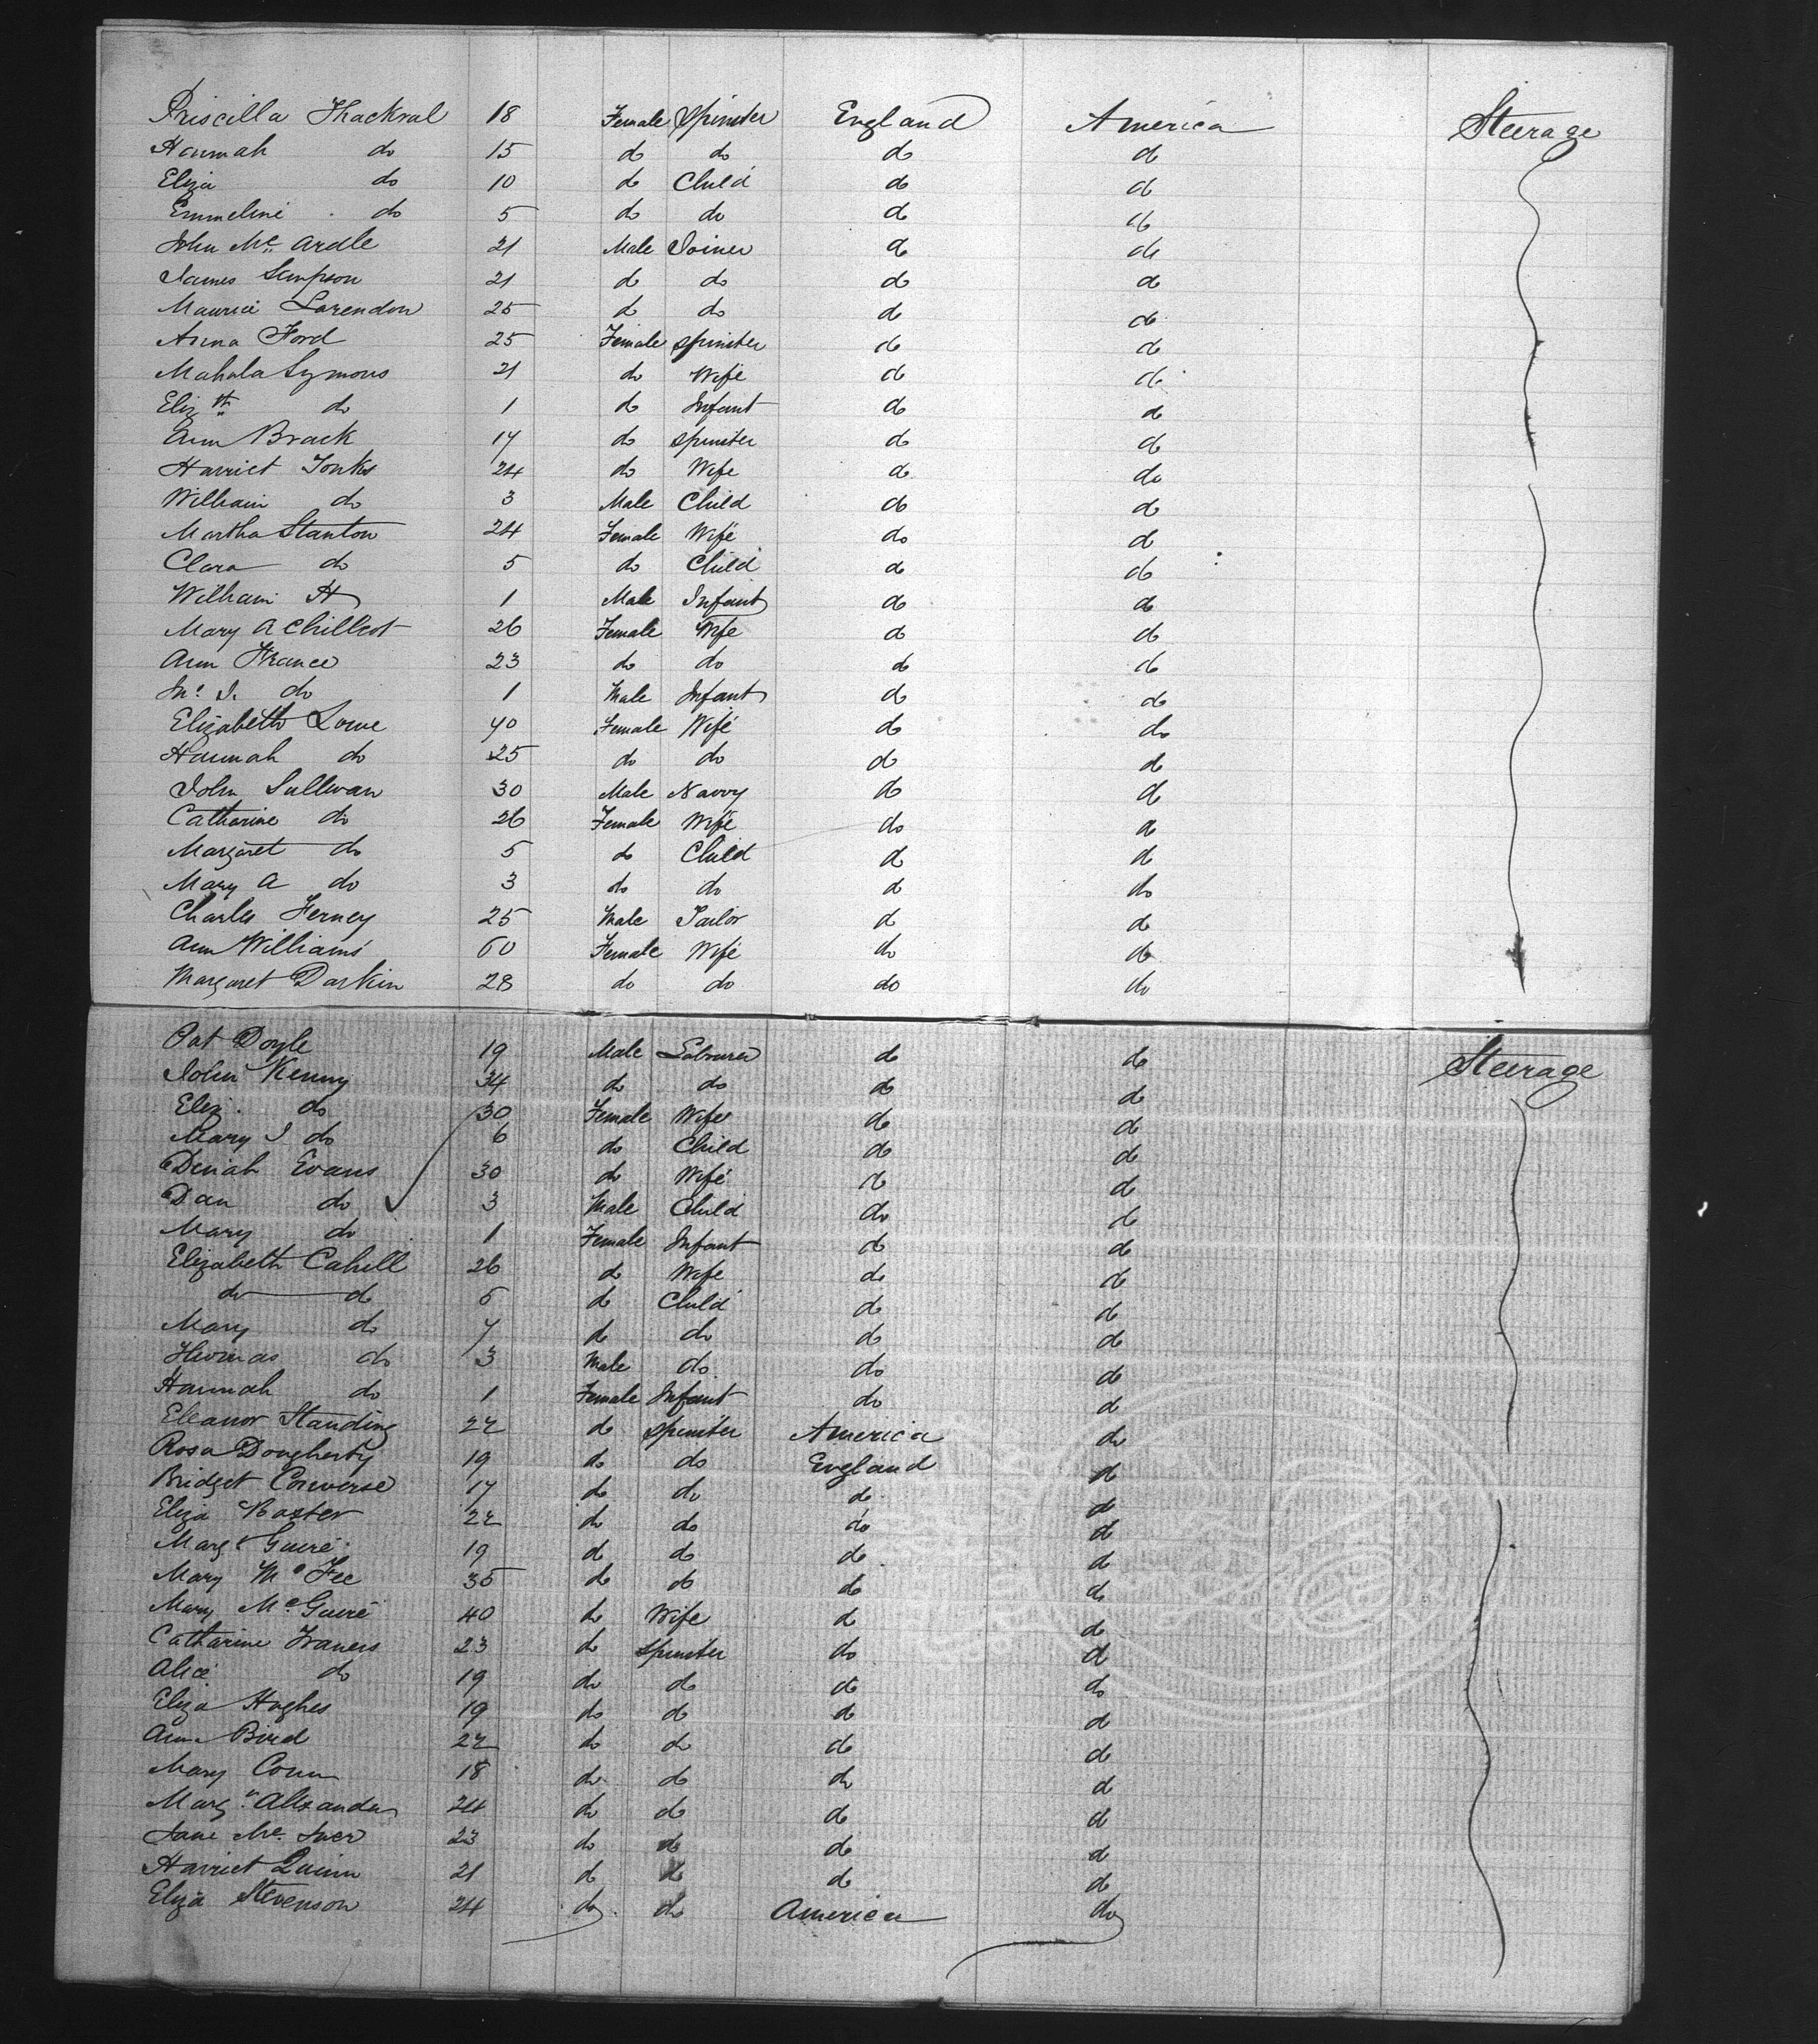 Priscilla Thackral 18 Female Spinster England America Steerage
Hannah do 15 do do do do
Eliza do 10 do Child do do
Emmeline do 5 do do do do
John Mc Ardle 21 Male Joiner do do
James Simpson 21 do do do do
Maurice Larendon 25 do do do do
Anna Ford 25 Female Spinster do do
Mahala Symons 21 do Wife do do
Elizth do 1 do Infant do do
Ann Brack 17 do Spinster do do
Harriet Tonks 24 do Wife do do
William do 3 Male Child do do
Martha Stanton 24 Female Wife do do
Clara do 5 do Child do do
William H 1 Male Infant do do
Mary A Chillcot 26 Female Wife do do
Ann France 23 do do do do
Jno. J. do 1 Male Infant do do
Elizabeth Lowe 40 Female Wife do do
Hannah do 25 do do do do
John Sullivan 30 Male Navvy do do
Catharine do 26 Female Wife do do
Margaret do 5 do Child do do
Mary A do 3 do do do do
Charles Ferney 25 Male Tailor do do
Ann Williams 60 Female Wife do do
Margaret Darkin 28 do do do do
Pat Doyle 19 Male Labourer do do Steerage
John Kenny 34 do do do do
Eliz. do 30 Female Wife do do
Mary J do 6 do Child do do
Dinah Evans 30 do Wife do do
Dan do 3 Male Child do do
Mary do 1 Female Infant do do
Elizabeth Cahill 26 do Wife do do
do do 5 do Child do do
Mary do 7 do do do do
Thomas do 3 Male do do do
Hannah do 1 Female Infant do do
Eleanor Standing 22 do Spinster America do
Rosa Dougherty 19 do do England do
Bridget Converse 17 do do do do
Eliza Baxter 22 do do do do
Margt Guire 19 do do do do
Mary Mc Fee 35 do do do do
Mary Mc Guire 40 do Wife do do
Catharine Francis 23 do Spinster do do
Alice do 19 do do do do
Eliza Hughes 19 do do do do
Ann Bird 22 do do do do
Mary Conn 18 do do do do
Margt. Alexander 24 do do do do
Jane Mc. 23 do do do do
Harriet Quinn 21 do do do do
Eliza Stevenson 24 do do America do